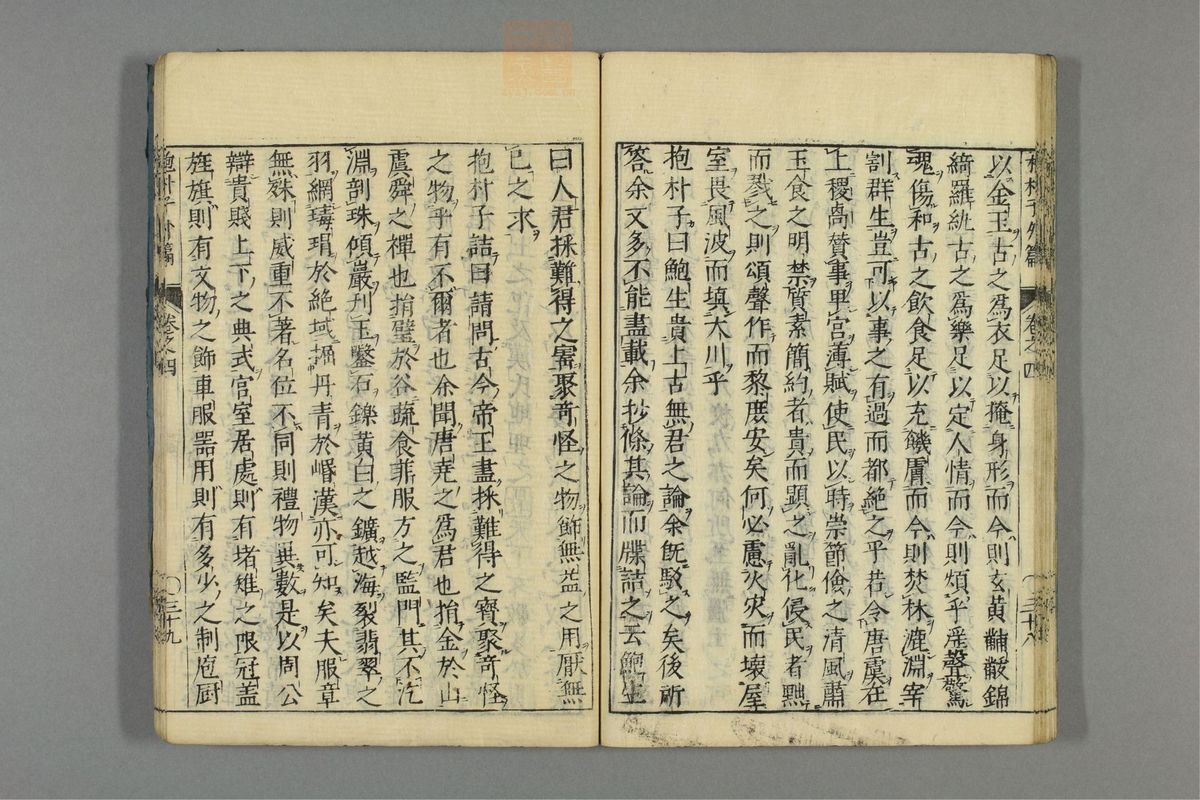 以金玉古之爲衣足以掩身形而今則玄黄黼黻錦
綺羅紈古之爲樂足以定人情而今則煩乎淫聲驚
魂傷和古之飲食足以充饑膚而今則焚林漉淵宰
割群生豈可以事之有過而都絶之乎若令唐虞在
上稷卨賛事卑宫薄賦使民以時崇節儉之清風肅
玉食之明禁質素簡約者貴而顕之亂化侵民者黜
而戮之則頌聲作而黎庶安矣何必慮火灾而壊屋
室畏風波而填大川乎
抱朴子曰鮑生貴上古無君之論余旣駁之矣後所
答余文多不能盡載余抄條其論而牒詰之云鮑生
曰人君採難得之寳聚竒怪之物飾無益之用厭無
已之求
抱朴子詰曰請問古今帝王盡採難得之寳聚竒怪
之物乎有不爾者也余聞唐堯之爲君也捐金於山
虞舜之禪也捐璧於谷蔬食菲服方之監門其不汔
淵剖珠傾巖刋玉鑿石鑠黄白之鑛越海裂翡翠之
羽網瑇瑁於絶域掘丹青於㟭漢亦可知矣夫服章
無殊則威重不著名位不同則禮物異數是以周公
辯貴賤上下之典式宫室居處則有堵雉之限冠盖
旌旗則有文物之飾車服器用則有多少之制庖厨
抱朴子外篇
卷之四
〇三十八
抱朴子外篇
卷之四
〇三十九